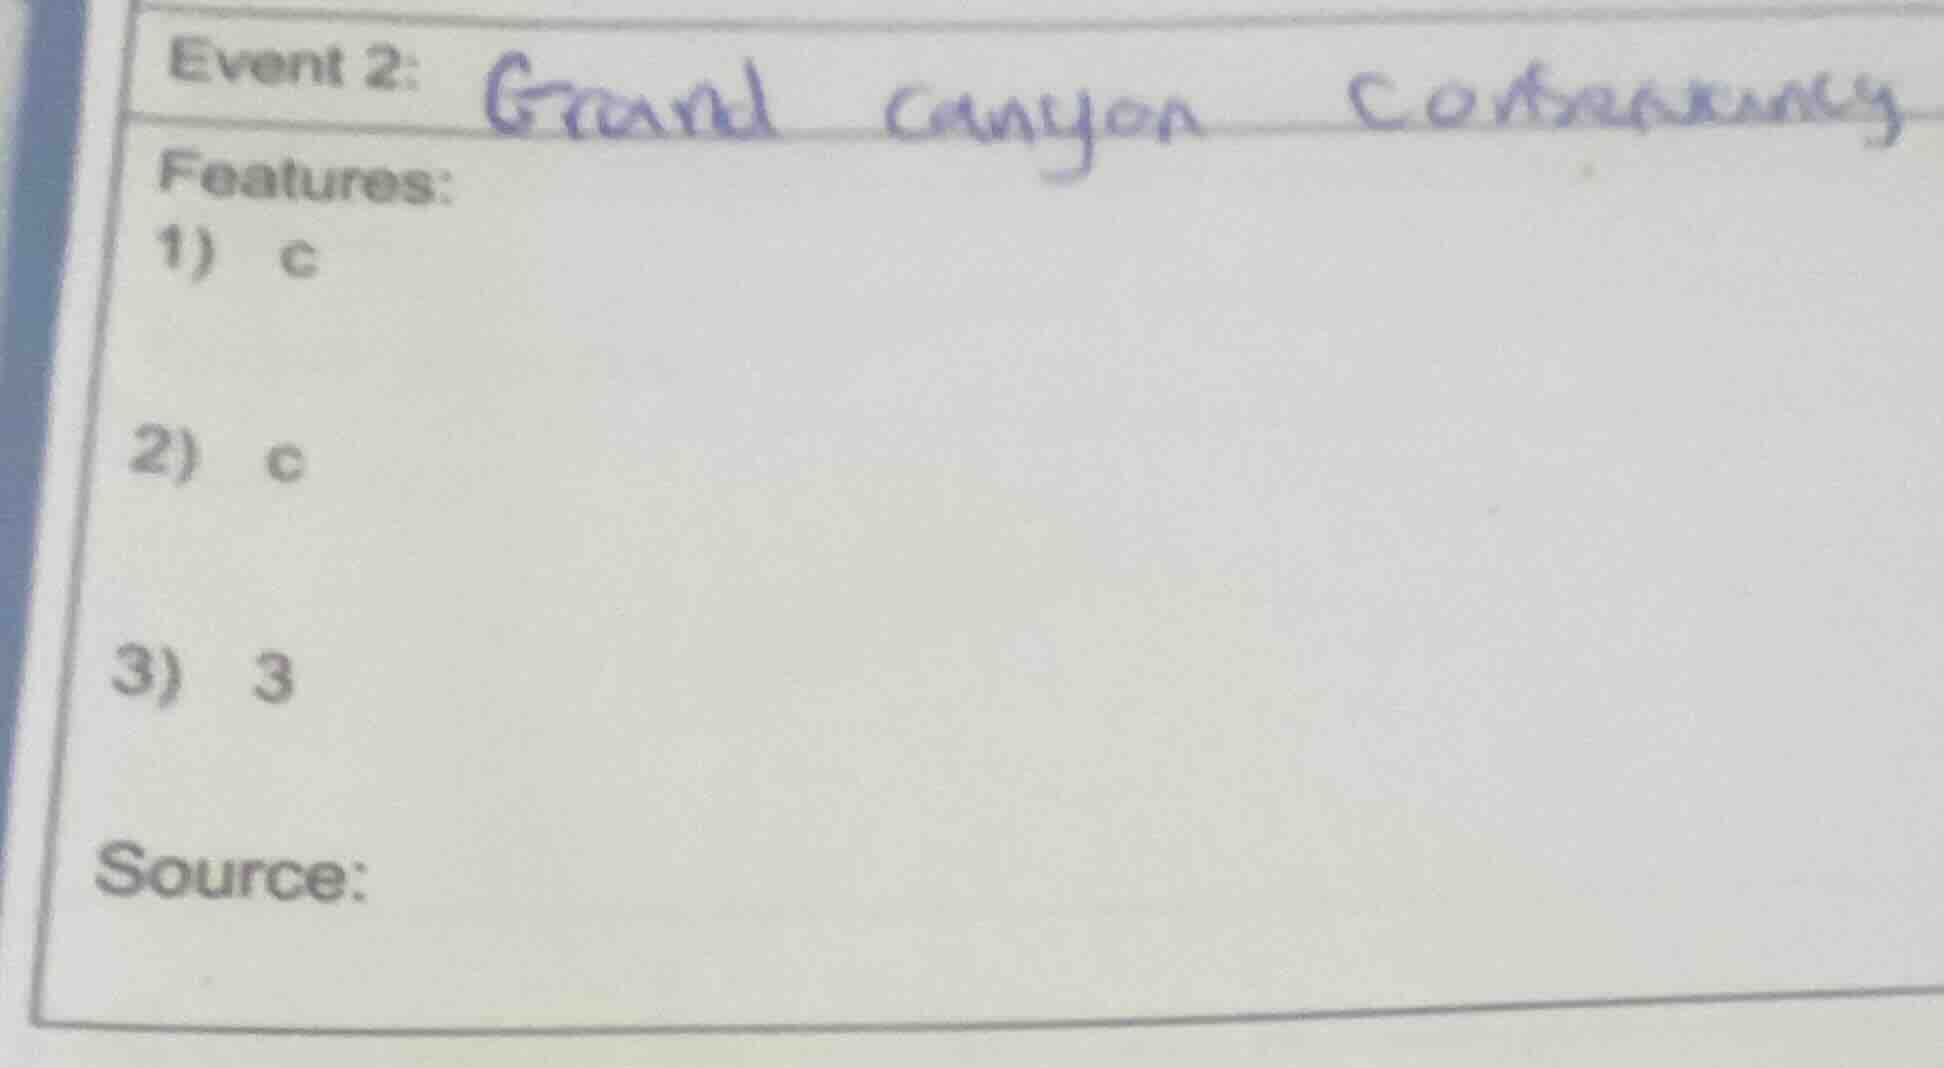 Event 2: Grand canyon Conservancy
Features:
1) c
2) c
3) 3
Source: